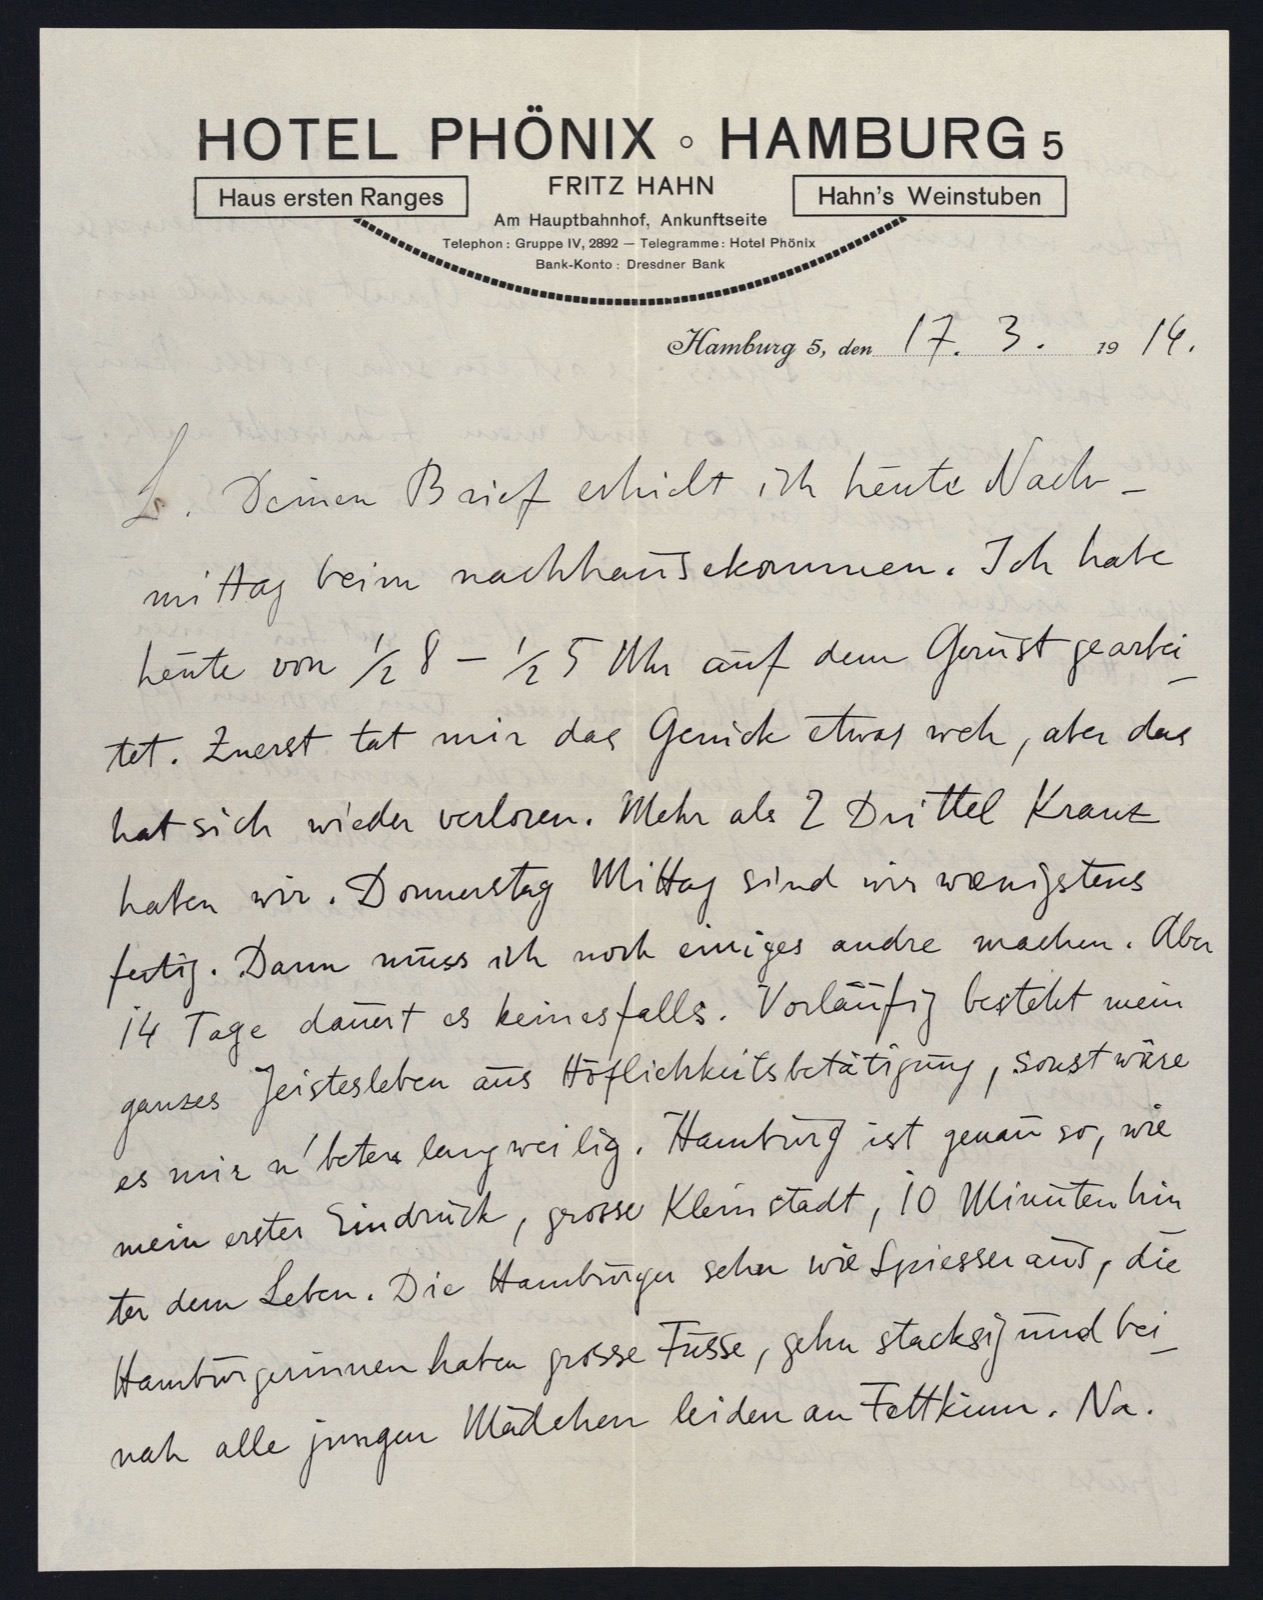 HOTEL PHÖNIX ◦ HAMBURG 5
Haus ersten Ranges
FRITZ HAHN
Hahn's Weinstuben
Am Hauptbahnhof, Ankunftseite
Telephon: Gruppe IV, 2892 — Telegramme: Hotel Phönix
Bank-Konto: Dresdner Bank
Hamburg 5, den 17. 3. 1914.
L. Deinen Brief erhielt ich heute Nach-
mittag beim nachhausekommen. Ich habe
heute von ½ 8 – ½ 5 Uhr auf dem Gerüst gearbei-
tet. Zuerst tat mir das Genick etwas weh, aber das
hat sich wieder verloren. Mehr als 2 Drittel Kranz
haben wir. Donnerstag Mittag sind wir wenigstens
fertig. Dann muss ich noch einiges andre machen. Aber
14 Tage dauert es keinesfalls. Vorläufig besteht mein
ganzes Geistesleben aus Höflichkeitsbetätigung, sonst wäre
es mir langweilig. Hamburg ist genau so, wie
mein erster Eindruck, grosse Kleinstadt, 10 Minuten hin
ter dem Leben. Die Hamburger sehn wie Spiesser aus, die
Hamburgerinnen haben grosse Füsse, gehn stacksig und bei-
nah alle jungen Mädchen leiden an Fettkinn. Na.